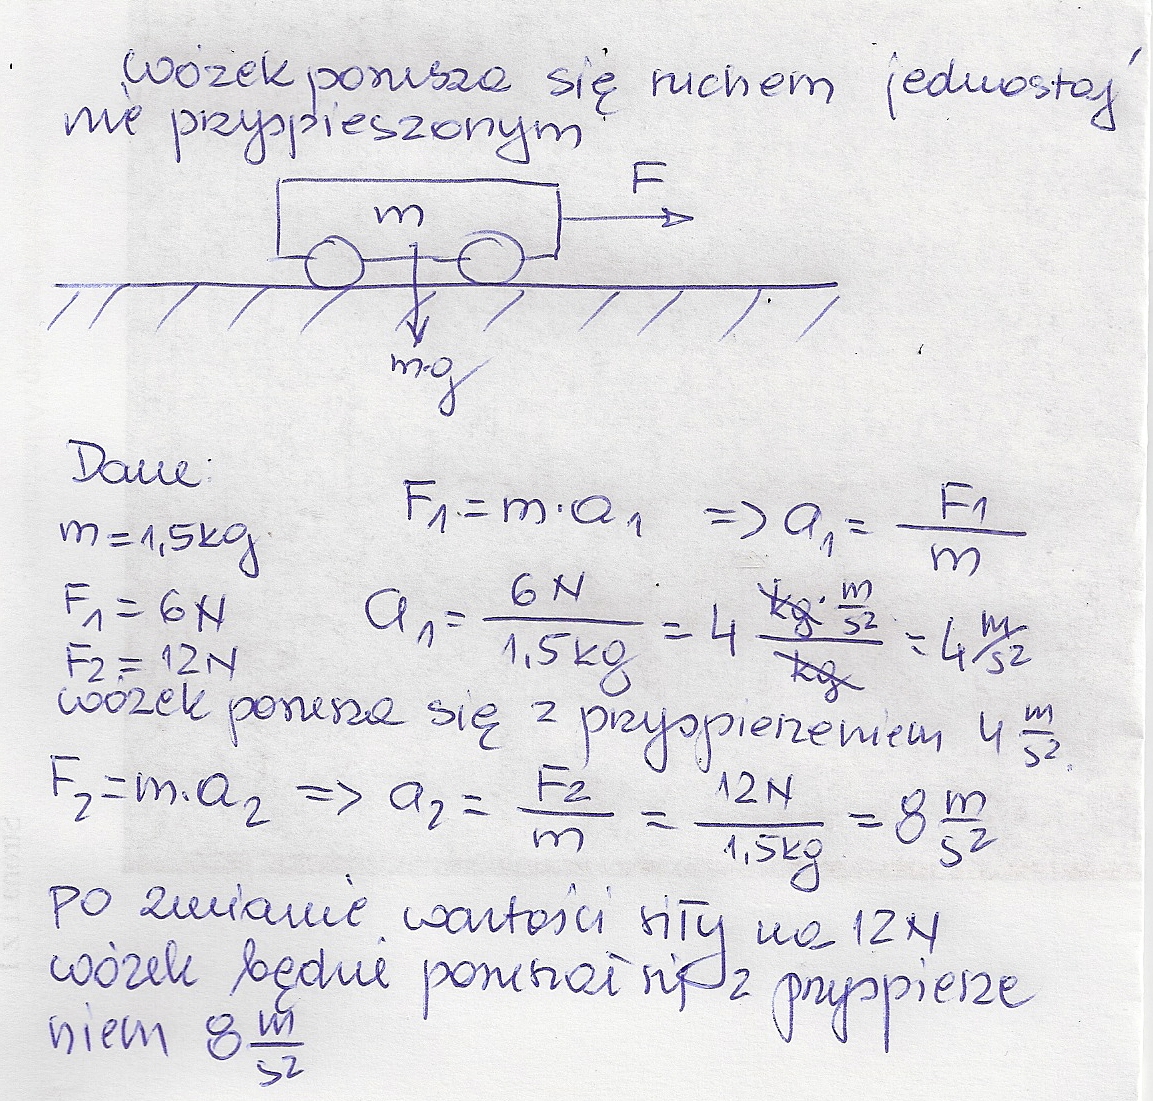 wózek porusza się ruchem jednostaj
nie przyspieszonym
F
m
m·g
Dane:
m=1,5kg
F₁=m·a₁ => a₁= F₁/m
F₁=6N
a₁= 6N/1,5kg = 4 kg·m/s²/kg = 4 m/s²
F₂=12N
wózek porusza się z przyspieszeniem 4 m/s².
F₂=m·a₂ => a₂= F₂/m = 12N/1,5kg = 8 m/s²
po zmianie wartości siły na 12N
wózek będzie poruszał się z przyspiesze
niem 8 m/s²